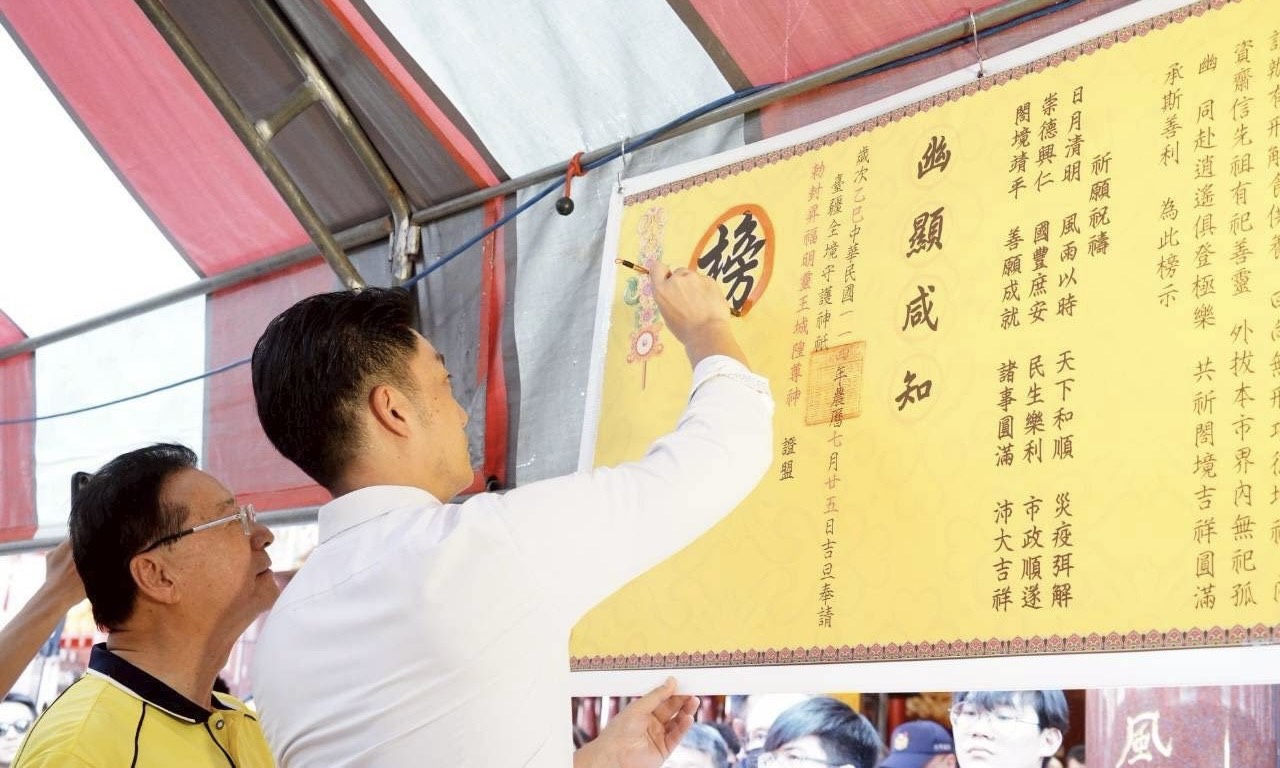 資齋信先祖有祀善靈 外拔本市界內無祀孤
幽 同赴逍遙俱登極樂 共祈閤境吉祥圓滿
承斯善利 為此榜示
祈願祝禱
日月清明 風雨以時 天下和順 災疫弭解
崇德興仁 國豐庶安 民生樂利 市政順遂
閤境靖平 善願成就 諸事圓滿 沛大吉祥
幽顯咸知
歲次乙巳中華民國一一四年農曆七月廿五日吉旦奉請
臺疆全境守護神祇
勅封昇福明靈王城隍尊神
證盟
榜
風